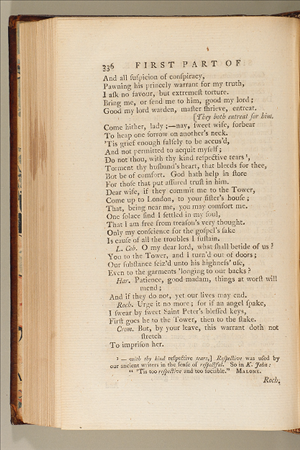 336 FIRST PART OF
And all suspicion of conspiracy,
Pawning his princely warrant for my truth,
I ask no favour, but extremest torture.
Bring me, or send me to him, good my lord;
Good my lord warden, master shrieve, entreat.
[They both entreat for him.
Come hither, lady;—nay, sweet wife, forbear
To heap one sorrow on another's neck.
'Tis grief enough falsely to be accus'd,
And not permitted to acquit myself;
Do not thou, with thy kind respective tears ¹,
Torment thy husband's heart, that bleeds for thee,
But be of comfort. God hath help in store
For those that put assured trust in him.
Dear wife, if they commit me to the Tower,
Come up to London, to your sister's house;
That, being near me, you may comfort me.
One solace find I settled in my soul,
That I am free from treason's very thought.
Only my conscience for the gospel's sake
Is cause of all the troubles I sustain.
L. Cob. O my dear lord, what shall betide of us?
You to the Tower, and I turn'd out of doors;
Our substance seiz'd unto his highness' use,
Even to the garments 'longing to our backs?
Har. Patience, good madam, things at worst will
mend;
And if they do not, yet our lives may end.
Roch. Urge it no more; for if an angel spake,
I swear by sweet Saint Peter's blessed keys,
First goes he to the Tower, then to the stake.
Crom. But, by your leave, this warrant doth not
stretch
To imprison her.
¹ — with thy kind respective tears,] Respective was used by
our ancient writers in the sense of respectful. So in K. John:
" 'Tis too respective and too sociable." MALONE.
Roch.